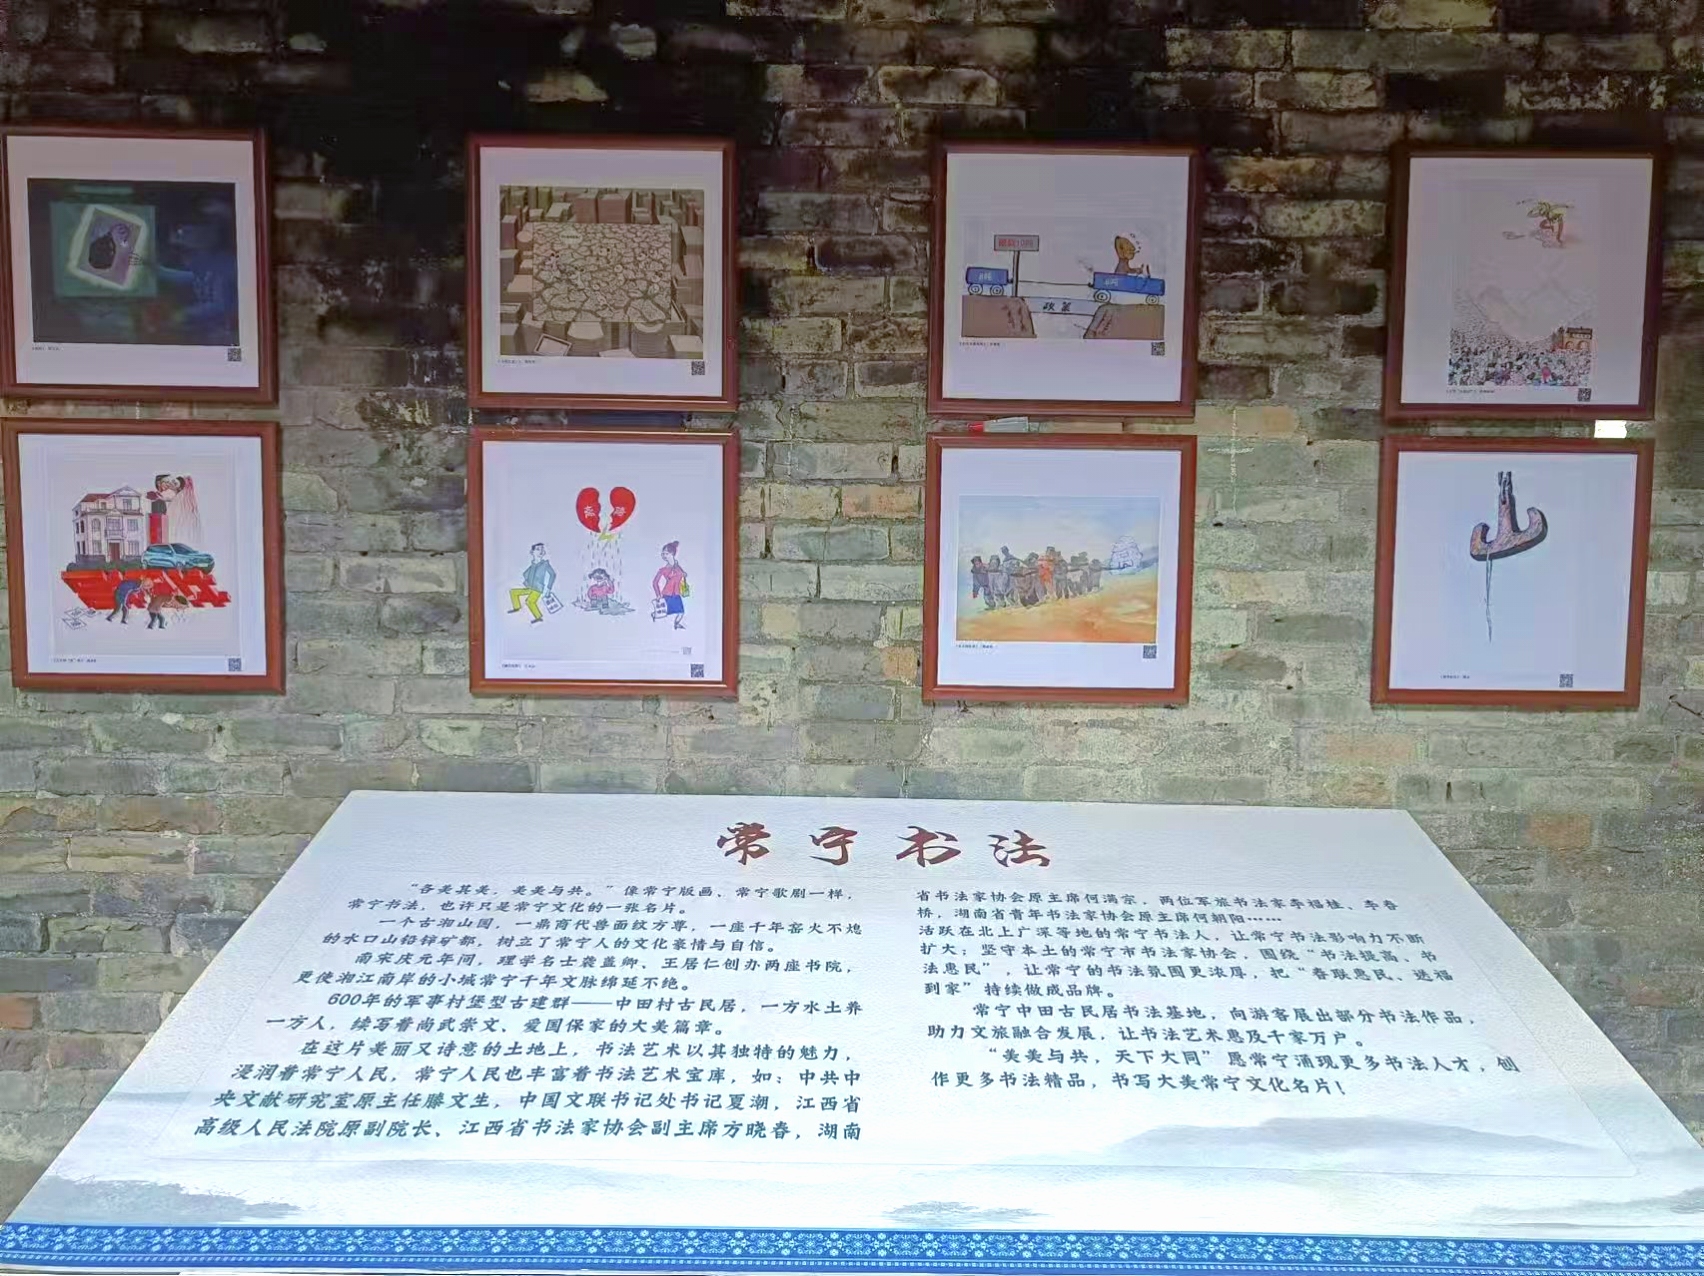 政策
常宁书法
“各美其美，美美与共。”像常宁版画、常宁歌剧一样，
常宁书法，也许只是常宁文化的一张名片。
一个古湘山国，一鼎商代兽面纹方尊，一座千年窑火不熄
的水口山铅锌矿都，树立了常宁人的文化豪情与自信。
南宋庆元年间，理学名士袭盖卿、王居仁创办两座书院，
更使湘江南岸的小城常宁千年文脉绵延不绝。
600年的军事村堡型古建群——中田村古民居，一方水土养
一方人，续写着尚武崇文、爱国保家的大美篇章。
在这片美丽又诗意的土地上，书法艺术以其独特的魅力，
浸润着常宁人民，常宁人民也丰富着书法艺术宝库，如：中共中
央文献研究室原主任滕文生，中国文联书记处书记夏潮，江西省
高级人民法院原副院长、江西省书法家协会副主席方晓春，湖南
省书法家协会原主席何满宗，两位军旅书法家李福桂、李春
桥，湖南省青年书法家协会原主席何朝阳……
活跃在北上广深等地的常宁书法人，让常宁书法影响力不断
扩大；坚守本土的常宁市书法家协会，围绕“书法提高、书
法惠民”，让常宁的书法氛围更浓厚，把“春联惠民、送福
到家”持续做成品牌。
常宁中田古民居书法基地，向游客展出部分书法作品，
助力文旅融合发展，让书法艺术惠及千家万户。
“美美与共，天下大同”愿常宁涌现更多书法人才，创
作更多书法精品，书写大美常宁文化名片！